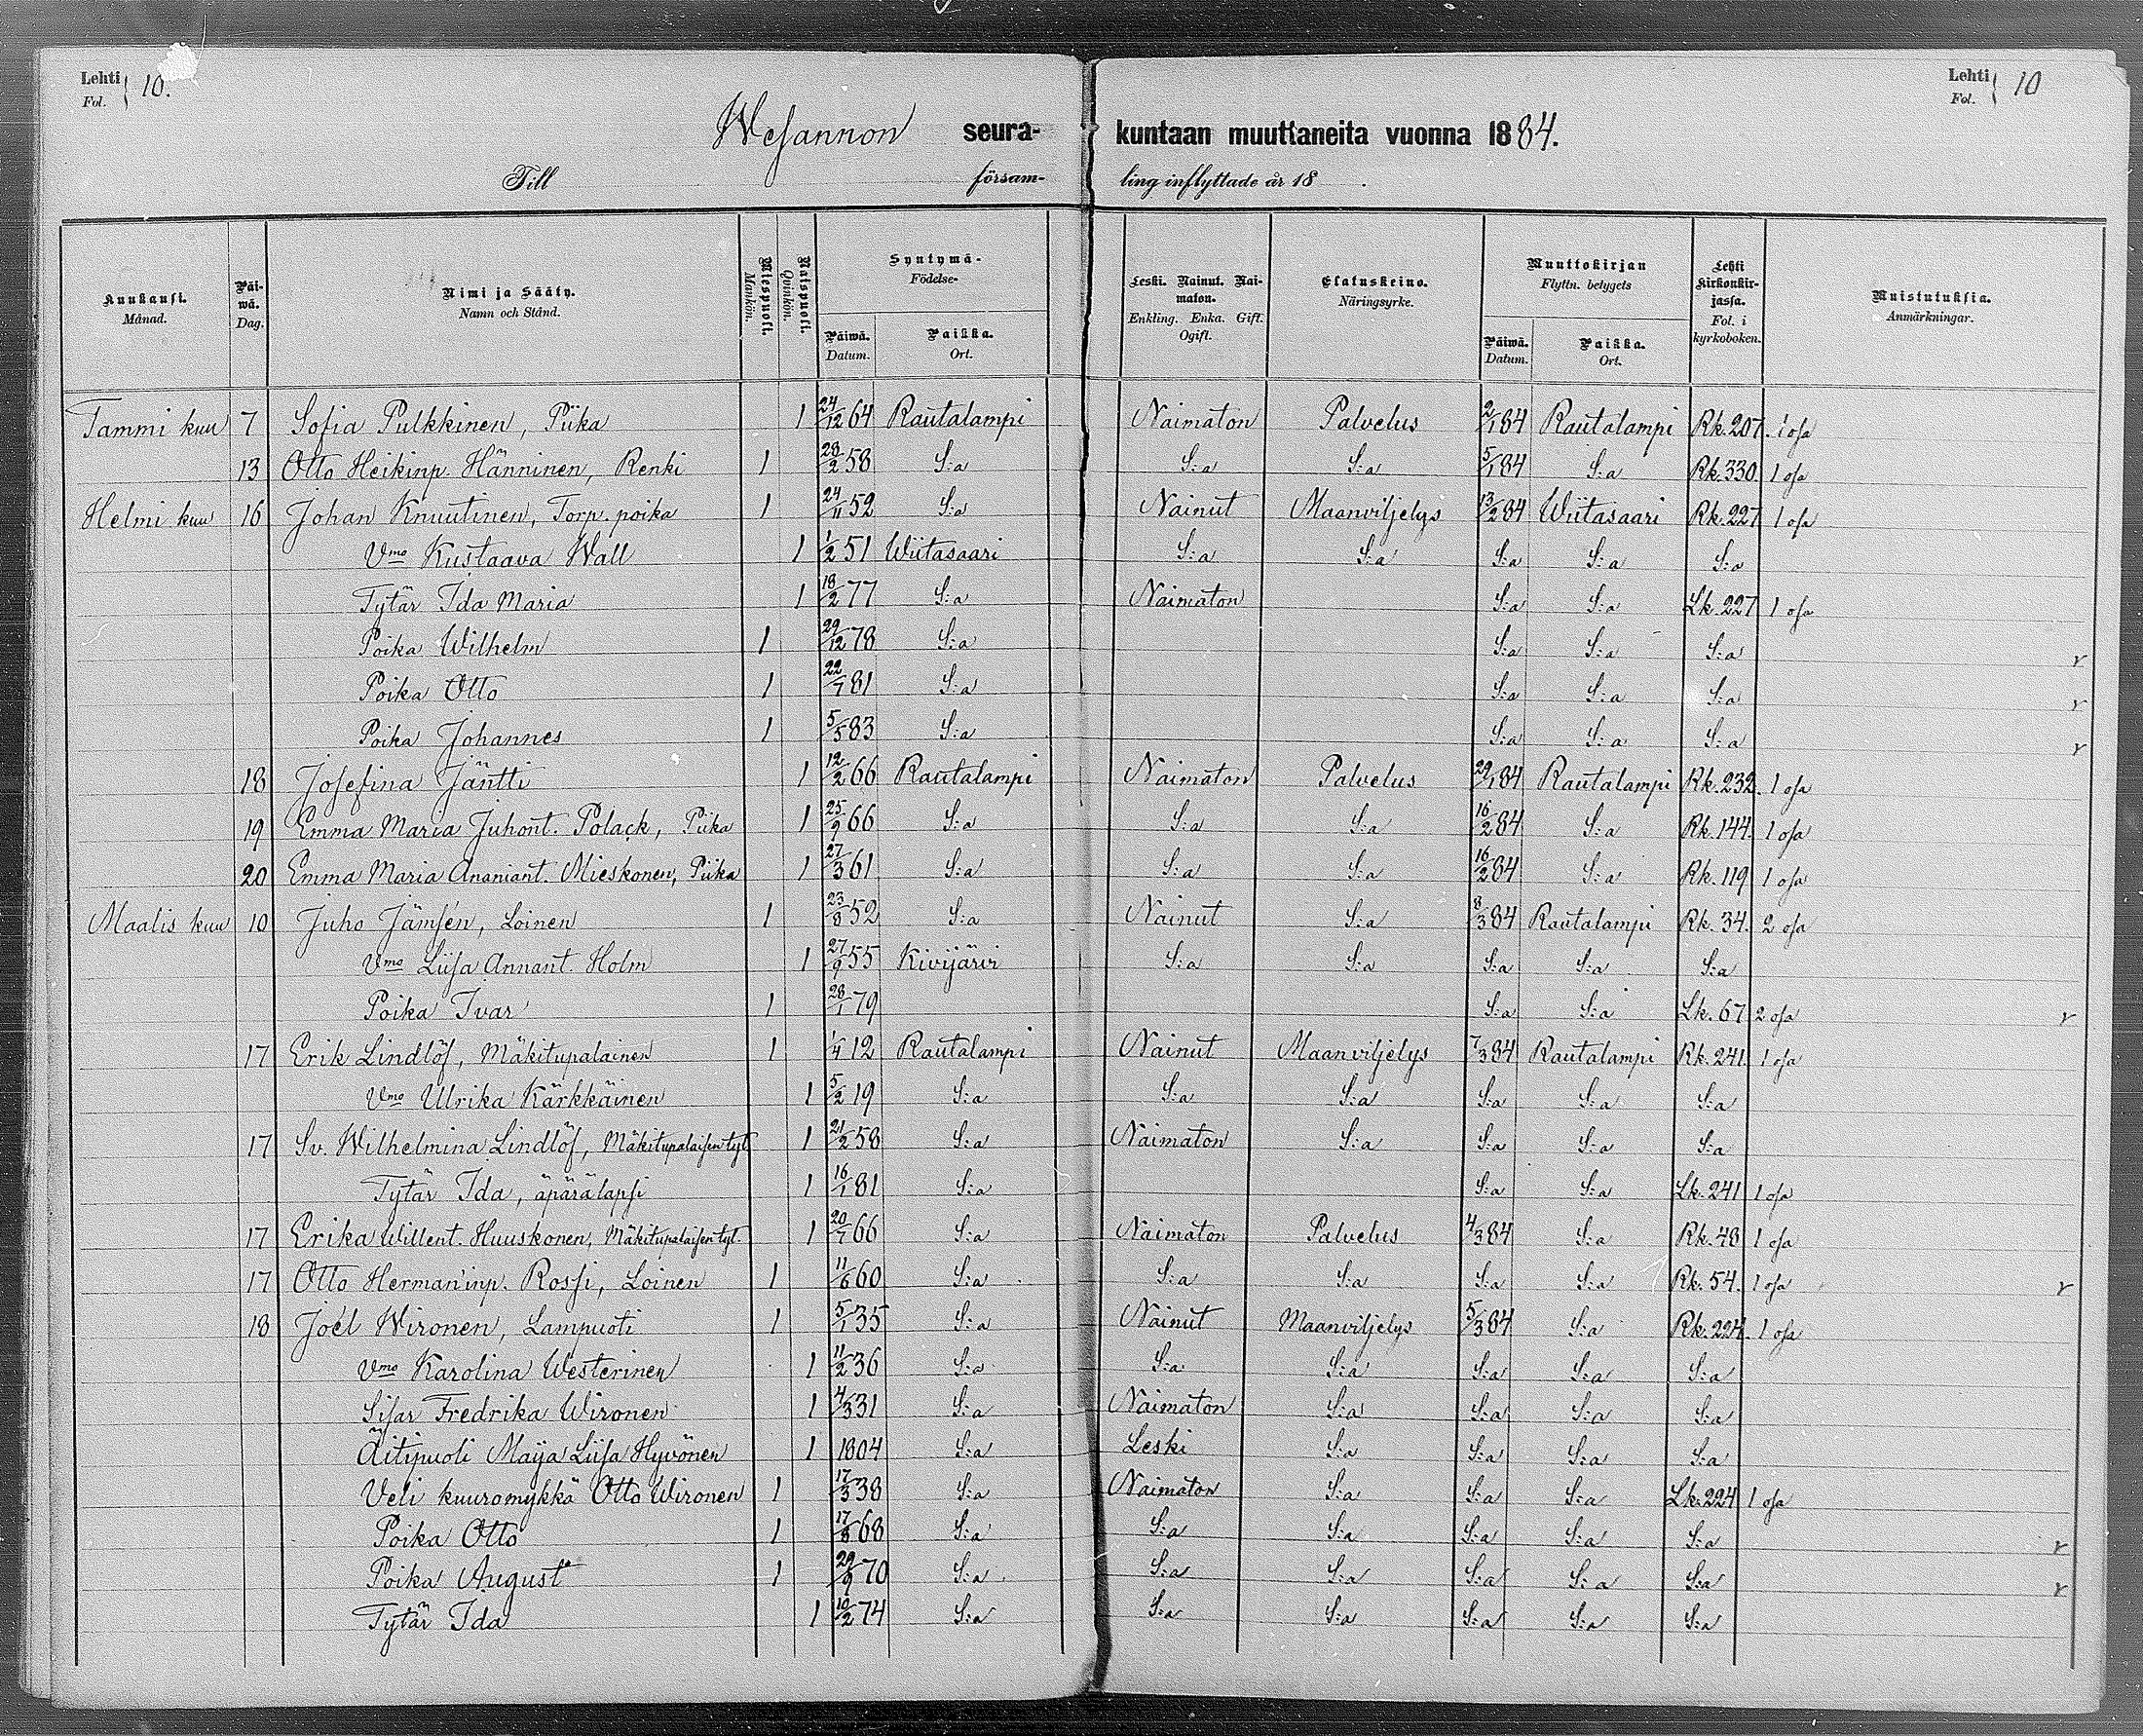 Lehti Fol. } 10. Lehti Fol. } 10
Wesannon seura- kuntaan muuttaneita vuonna 1884.
Till försam- ling inflyttade år 18 .
Kuukausi. Månad. Päi-wä. Dag. Nimi ja Sääty. Namn och Stånd. Miespuoli. Mankön. Naispuoli. Qvinkön. Syntymä- Födelse- Päiwä. Datum. Paikka. Ort. Leski. Nainut. Nai-maton. Enkling. Enka. Gift. Ogift. Elatuskeino. Näringsyrke. Muuttokirjan Flyttn. betygets Päiwä. Datum. Paikka. Ort. Lehti Kirkonkir-jassa. Fol. i kyrkoboken. Muistutuksia. Anmärkningar.
Tammi kuu 7 Sofia Pulkkinen, Piika 1 24/12 64 Rautalampi Naimaton Palvelus 2/1 84 Rautalampi Rk. 207. 1 osa
13 Otto Heikinp. Hänninen, Renki 1 28/2 58 S:a S:a S:a 5/1 84 S:a Rk. 330 1 osa
Helmi kuu 16 Johan Knuutinen, Torp. poika 1 24/11 52 S:a Nainut Maanviljelys 13/2 84 Wiitasaari Rk. 227 1 osa
Vmo Kustaava Wall 1 1/2 51 Wiitasaari S:a S:a S:a S:a S:a
Tytär Ida Maria 1 18/2 77 S:a Naimaton S:a S:a Lk. 227 1 osa
Poika Wilhelm 1 29/12 78 S:a S:a S:a S:a r
Poika Otto 1 22/7 81 S:a S:a S:a S:a r
Poika Johannes 1 5/5 83 S:a S:a S:a S:a r
18 Josefina Jäntti 1 12/2 66 Rautalampi Naimaton Palvelus 29/1 84 Rautalampi Rk. 232. 1 osa
19 Emma Maria Juhont. Polack, Piika 1 25/9 66 S:a S:a S:a 16/2 84 S:a Rk. 144. 1 osa
20 Emma Maria Ananiant. Mieskonen, Piika 1 27/3 61 S:a S:a S:a 16/2 84 S:a Rk. 119 1 osa
Maalis kuu 10 Juho Jämsén, Loinen 1 23/8 52 S:a Nainut S:a 8/3 84 Rautalampi Rk. 34. 2 osa
Vmo Liisa Annant. Holm 1 27/9 55 Kivijärvi S:a S:a S:a S:a S:a
Poika Ivar 1 28/1 79 S:a S:a Lk. 67 2 osa r
17 Erik Lindlöf, Mäkitupalainen 1 1/4 12 Rautalampi Nainut Maanviljelys 7/3 84 Rautalampi Rk. 241. 1 osa
Vmo Ulrika Kärkkäinen 1 5/2 19 S:a S:a S:a S:a S:a S:a
17 Sv. Wilhelmina Lindlöf, Mäkitupalaisen tyt. 1 21/2 58 S:a Naimaton S:a S:a S:a S:a
Tytär Ida, äpärälapsi 1 16/1 81 S:a S:a S:a Lk. 241 1 osa
17 Erika Willent. Huuskonen, Mäkitupalaisen tyt. 1 20/7 66 S:a Naimaton Palvelus 4/3 84 S:a Rk. 48 1 osa
17 Otto Herman'inp. Rossi, Loinen 1 11/6 60 S:a S:a S:a S:a S:a Rk. 54. 1 osa r
18 Joël Wironen, Lampuoti 1 5/1 35 S:a Nainut Maanviljelys 5/3 84 S:a Rk. 224. 1 osa
Vmo Karolina Westerinen 1 11/2 36 S:a S:a S:a S:a S:a S:a
Sisar Fredrika Wironen 1 4/3 31 S:a Naimaton S:a S:a S:a S:a
Äitipuoli Maija Liisa Hyvönen 1 1804 S:a Leski S:a S:a S:a S:a
Veli kuuromykkä Otto Wironen 1 17/3 38 S:a Naimaton S:a S:a S:a Lk. 224 1 osa
Poika Otto 1 17/8 68 S:a S:a S:a S:a S:a S:a r
Poika August 1 29/9 70 S:a S:a S:a S:a S:a S:a r
Tytär Ida 1 10/2 74 S:a S:a S:a S:a S:a S:a